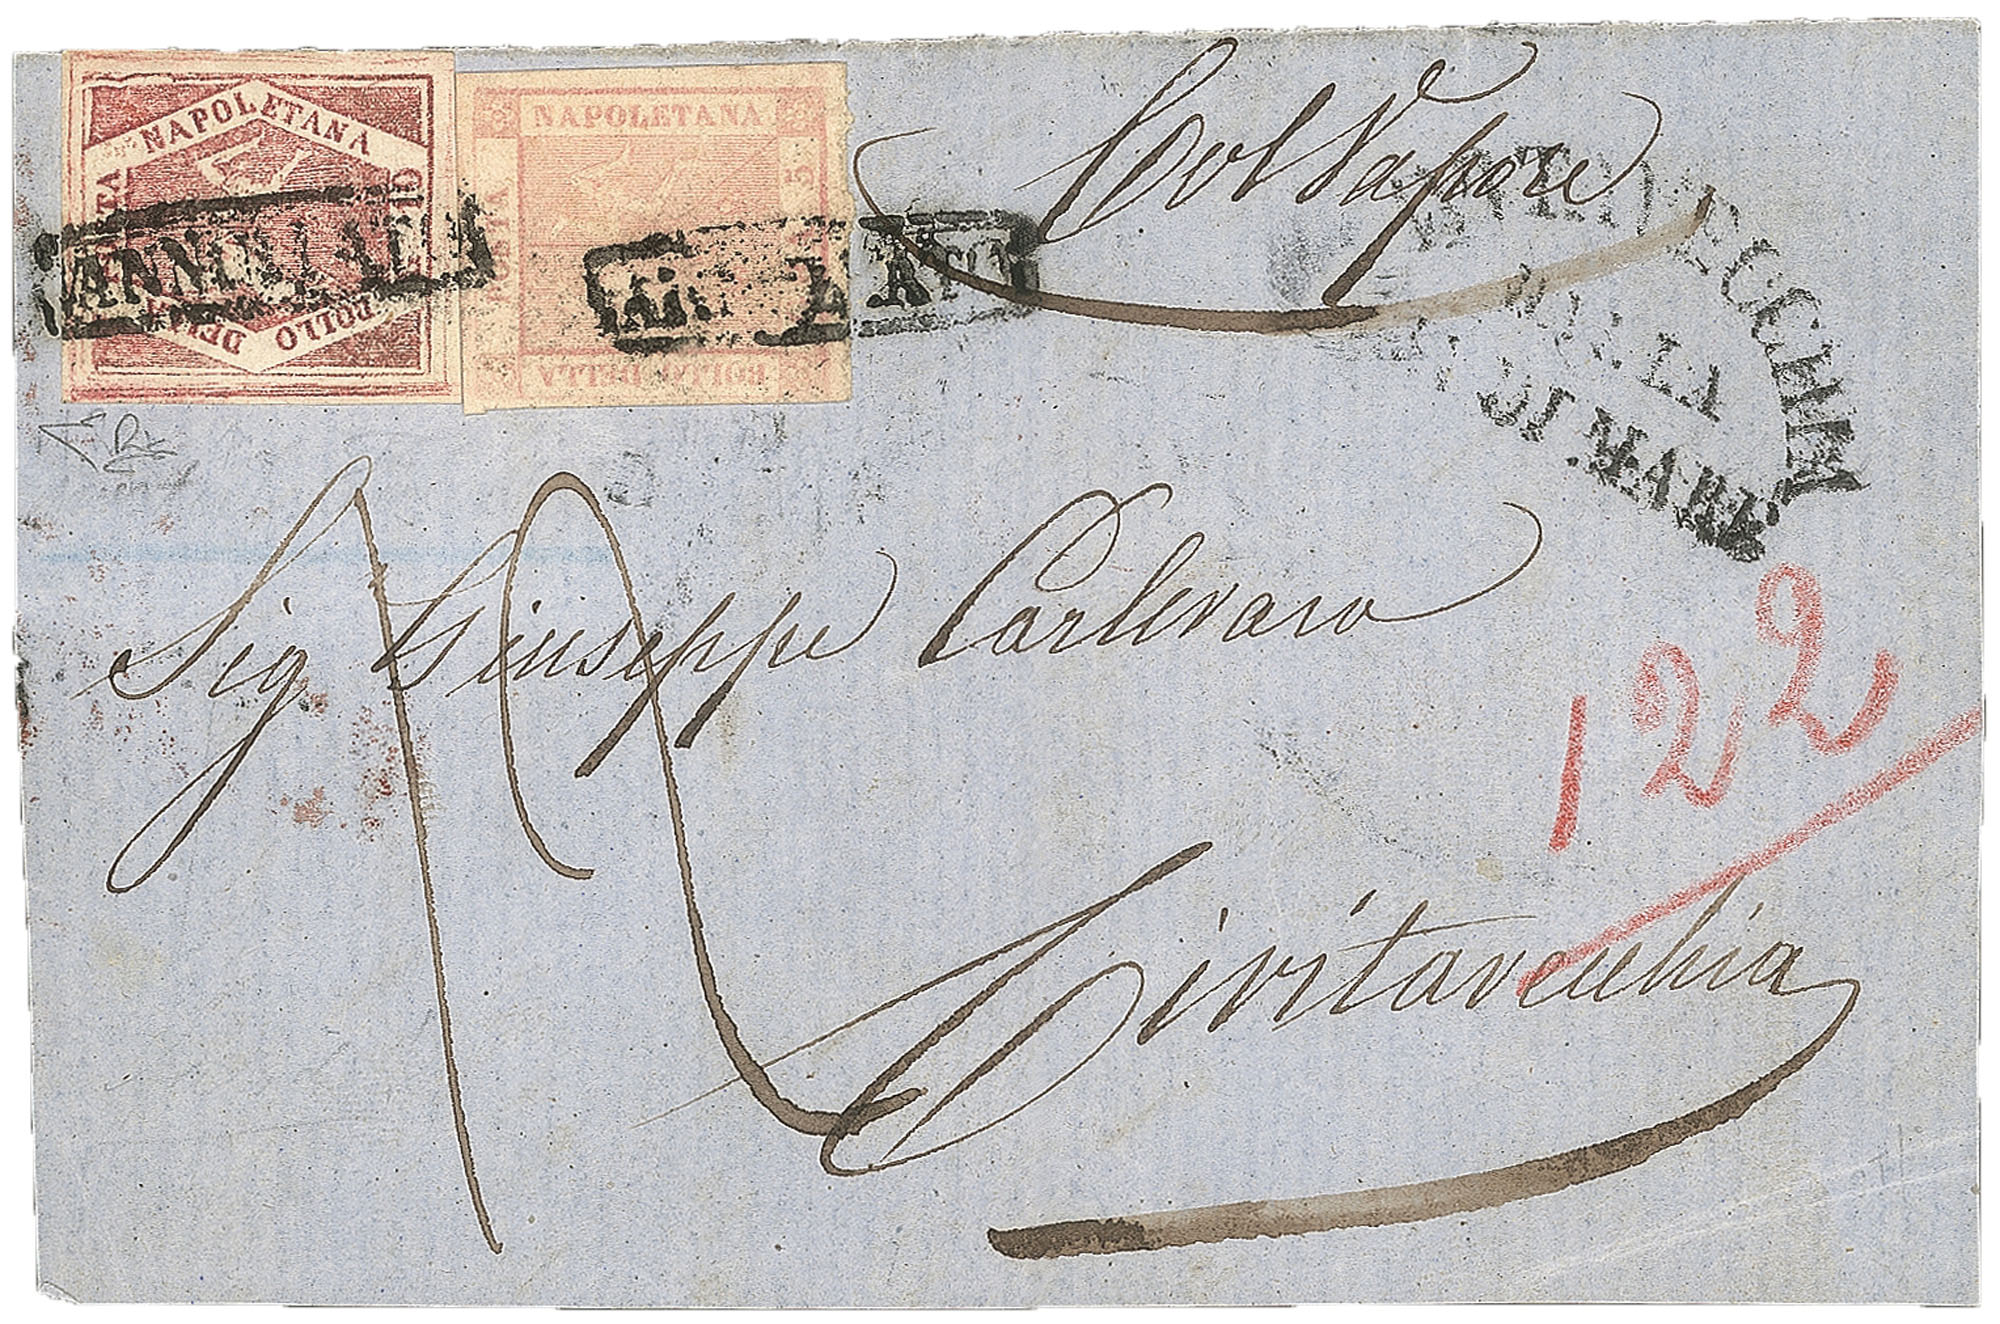 NAPOLETANA
POSTA
BOLLO DELLA
ANNULLATO
NAPOLETANA
POSTA
5
BOLLO DELLA
ANNULLATO
Col Vapore
DI MARE
Sig Giuseppe Carlevaro
122
Civitavecchia